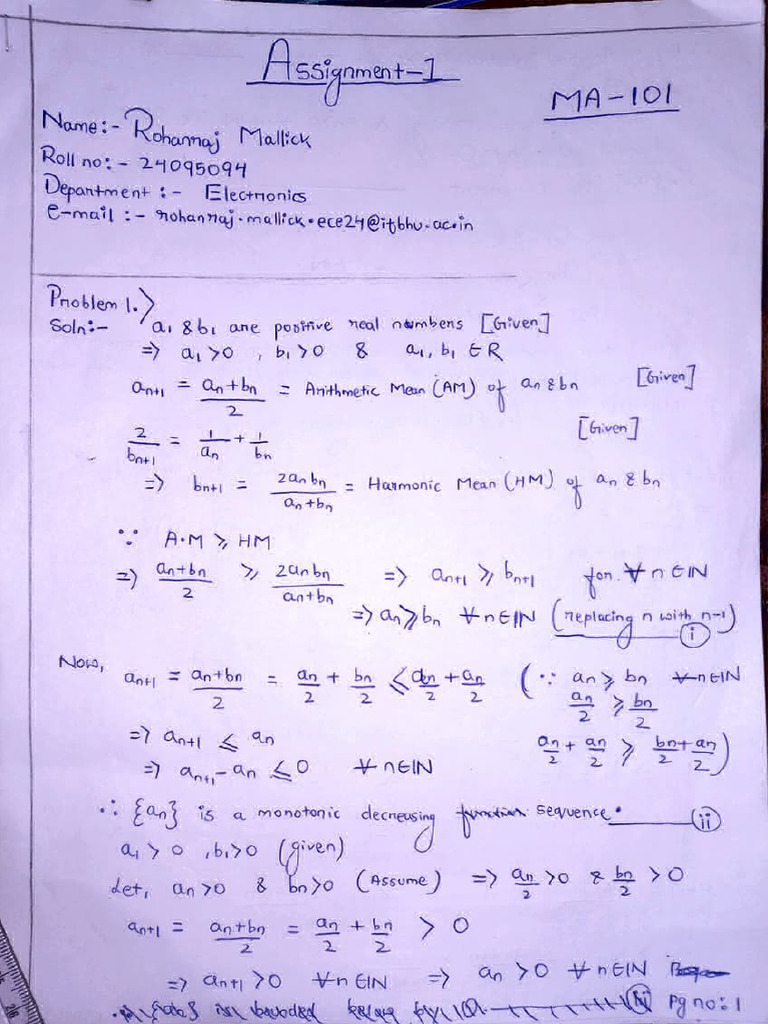 Assignment-1
MA-101
Name:- Rohanraj Mallick
Roll no:- 24095094
Department:- Electronics
e-mail:- rohanraj.mallick.ece24@itbhu.ac.in
Problem 1.>
Soln:- a₁ & b₁ are positive real numbers [Given]
=> a₁ > 0 , b₁ > 0 & a₁, b₁ ∈ R
aₙ₊₁ = (aₙ+bₙ)/2 = Arithmetic Mean (AM) of aₙ & bₙ [Given]
2/bₙ₊₁ = 1/aₙ + 1/bₙ [Given]
=> bₙ₊₁ = 2aₙbₙ/(aₙ+bₙ) = Harmonic Mean (HM) of aₙ & bₙ
∵ A.M ⩾ HM
=> (aₙ+bₙ)/2 ⩾ 2aₙbₙ/(aₙ+bₙ) => aₙ₊₁ ⩾ bₙ₊₁ for ∀ n ∈ IN
=> aₙ ⩾ bₙ ∀ n ∈ IN (replacing n with n-1) (i)
Now, aₙ₊₁ = (aₙ+bₙ)/2 = aₙ/2 + bₙ/2 ⩽ aₙ/2 + aₙ/2 (∵ aₙ ⩾ bₙ ∀ n ∈ IN
aₙ/2 ⩾ bₙ/2
=> aₙ₊₁ ⩽ aₙ aₙ/2 + aₙ/2 ⩾ bₙ/2 + aₙ/2)
=> aₙ₊₁ - aₙ ⩽ 0 ∀ n ∈ IN
∴ {aₙ} is a monotonic decreasing function sequence. (ii)
a₁ > 0 , b₁ > 0 (given)
Let, aₙ > 0 & bₙ > 0 (Assume) => aₙ/2 > 0 & bₙ/2 > 0
aₙ₊₁ = (aₙ+bₙ)/2 = aₙ/2 + bₙ/2 > 0
=> aₙ₊₁ > 0 ∀ n ∈ IN => aₙ > 0 ∀ n ∈ IN
Pg no: 1